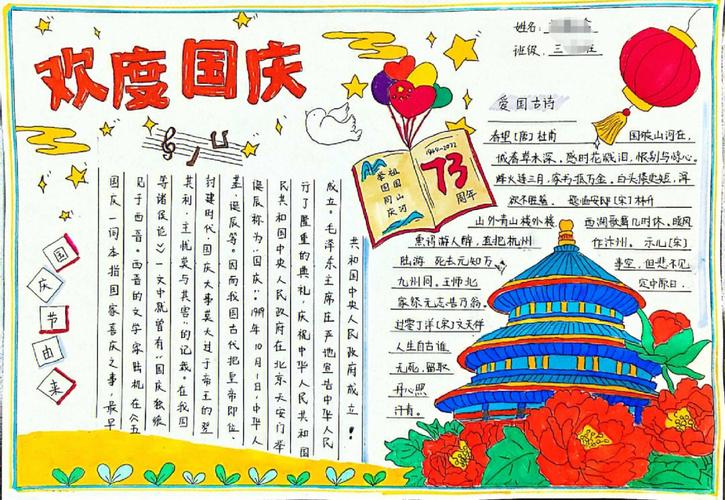 欢度国庆
姓名:
班级: 三
1949-2022
73
周年
祖国山河
举国同庆
国庆节由来
国庆一词本指国家喜庆之事，最早
见于西晋。西晋的文学家陆机在《五
等诸侯论》一文中就曾有“国庆独飨
其利，主忧莫与其害”的记载。在我国
封建时代，国庆大事莫大过于帝王的登
基、诞辰等。因而我国古代把皇帝即位、
诞辰称为“国庆”。1949年10月1日，中华人
民共和国中央人民政府在北京天安门举
行了隆重的典礼，庆祝中华人民共和国
成立。毛泽东主席庄严地宣告中华人民
共和国中央人民政府成立！
爱国古诗
春望[唐]杜甫 国破山河在，
城春草木深。感时花溅泪，恨别鸟惊心。
烽火连三月，家书抵万金。白头搔更短，浑
欲不胜簪。 题临安邸[宋]林升
山外青山楼外楼， 西湖歌舞几时休。暖风
熏得游人醉，直把杭州 作汴州。 示儿[宋]
陆游 死去元知万 事空，但悲不见
九州同。王师北 定中原日，
家祭无忘告乃翁。
过零丁洋[宋]文天祥
人生自古谁
无死，留取
丹心照
汗青。